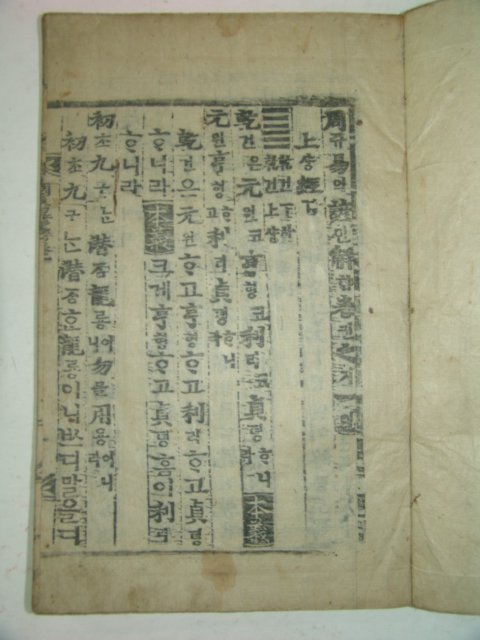 周쥬易역諺언解ᄒᆡ卷권之지一일
上샹經경
☰ 乾건下하 乾건上샹
乾건은元원코亨형코利리코貞뎡ᄒᆞ니라 本義
元원亨형ᄒᆞ고利리貞뎡ᄒᆞ니
乾건은元원ᄒᆞ고亨형ᄒᆞ고利리ᄒᆞ고貞뎡
ᄒᆞ니라 本義 크게亨형ᄒᆞ고貞뎡홈이利리
ᄒᆞ니라
初초九구ᄂᆞᆫ潛ᄌᆞᆷ龍룡이니勿믈用용이니라
初초九구ᄂᆞᆫ潛ᄌᆞᆷᄒᆞᆫ龍룡이니ᄡᅳ디말을디